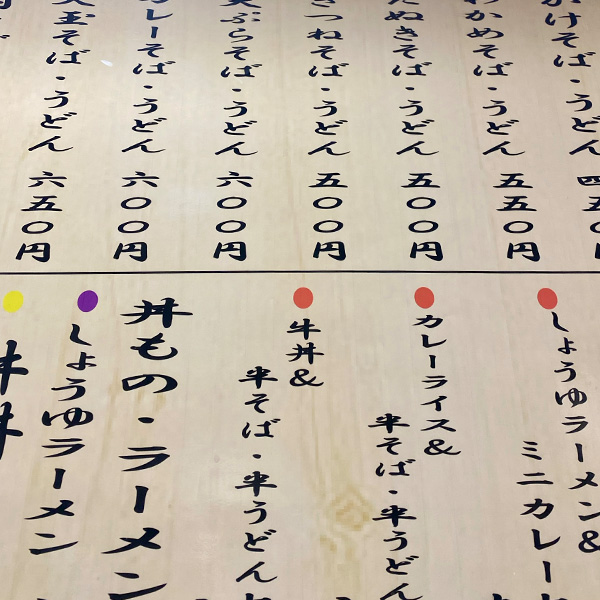 かけそば・うどん 四五
わかめそば・うどん 五五〇円
たぬきそば・うどん 五〇〇円
きつねそば・うどん 五〇〇円
天ぷらそば・うどん 六〇〇円
カレーそば・うどん 六〇〇円
天玉そば・うどん 六五〇円
しょうゆラーメン&
ミニカレー
カレーライス&
半そば・半うどん
牛丼&
半そば・半うどん
丼もの・ラーメン
しょうゆラーメン